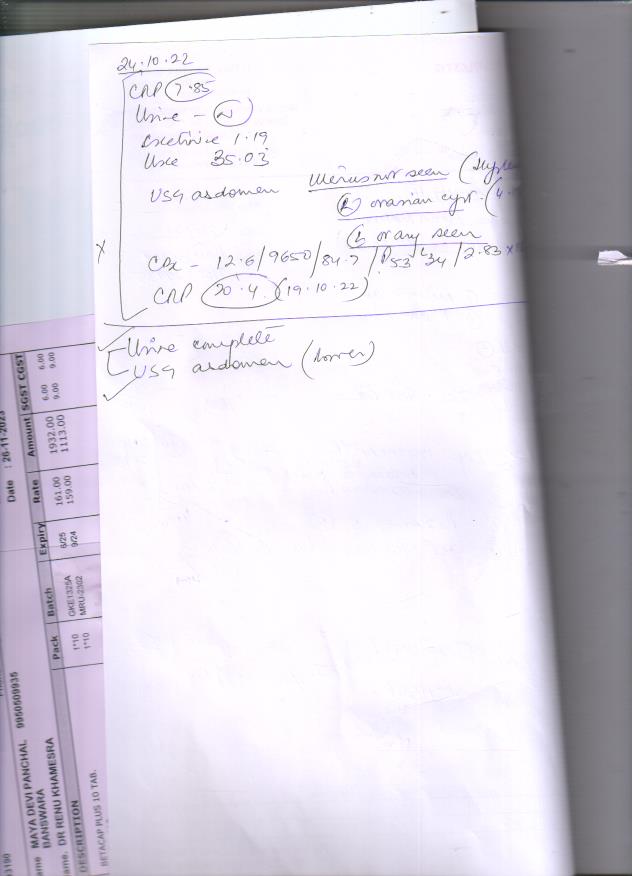 24.10.22
CRP 7.85
Urine - N
Creatinine 1.19
Urea 35.03
USG abdomen Uterus not seen
(R) ovarian cyst. (4.
(L) ovary seen
CBC - 12.6/9650/84.7/P53 L34/2.83 x
CRP 20.4 (19.10.22)
Urine complete
USG abdomen (lower)
Date : 26-11-2023
Pack Batch Expiry Rate Amount SGST CGST
1*10 GKE1325A 6/25 161.00 1932.00 6.00 6.00
1*10 MRU-2302 9/24 159.00 1113.00 9.00 9.00
3190
ame MAYA DEVI PANCHAL 9950509935
BANSWARA
ame. DR RENU KHAMESRA
DESCRIPTION
BETACAP PLUS 10 TAB.